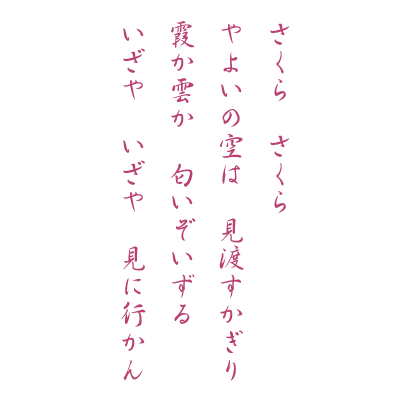 さくら　さくら
やよいの空は　見渡すかぎり
霞か雲か　匂いぞいずる
いざや　いざや　見に行かん